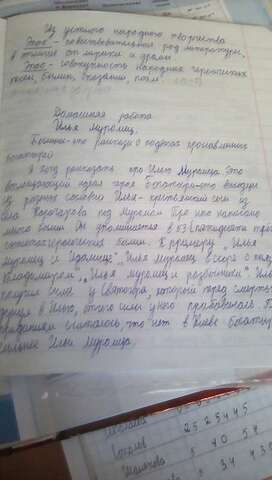 Из устного народного творчества
Эпос - повествовательный род литературы,
в отличие от лирики и драмы
Эпос - совокупность народных героических
песен, былин, сказаний, поэм.
Домашняя работа
Илья Муромец.
Былины-это рассказы о подвигах прославленных
богатырей
Я хочу рассказать про Илью Муромца. Это
воплощающий идеал героя
из разных сословий Илья- крестьянский сын из
села Карачарова под Муромом Про него написано
много былин Он упоминается в 53
героических былин. К примеру, „Илья
Муромец и Идолище", „Илья Муромец в ссоре с
Владимиром", „Илья Муромец и разбойники" Илья
получил силу у Святогора, который перед смертью
в Илью, отчего силы у него прибавилось. По
преданиям считалось, что нет в Киеве богатыря
сильнее Ильи Муромца.
25 25 4 4 5
5 40 54
34 4 3